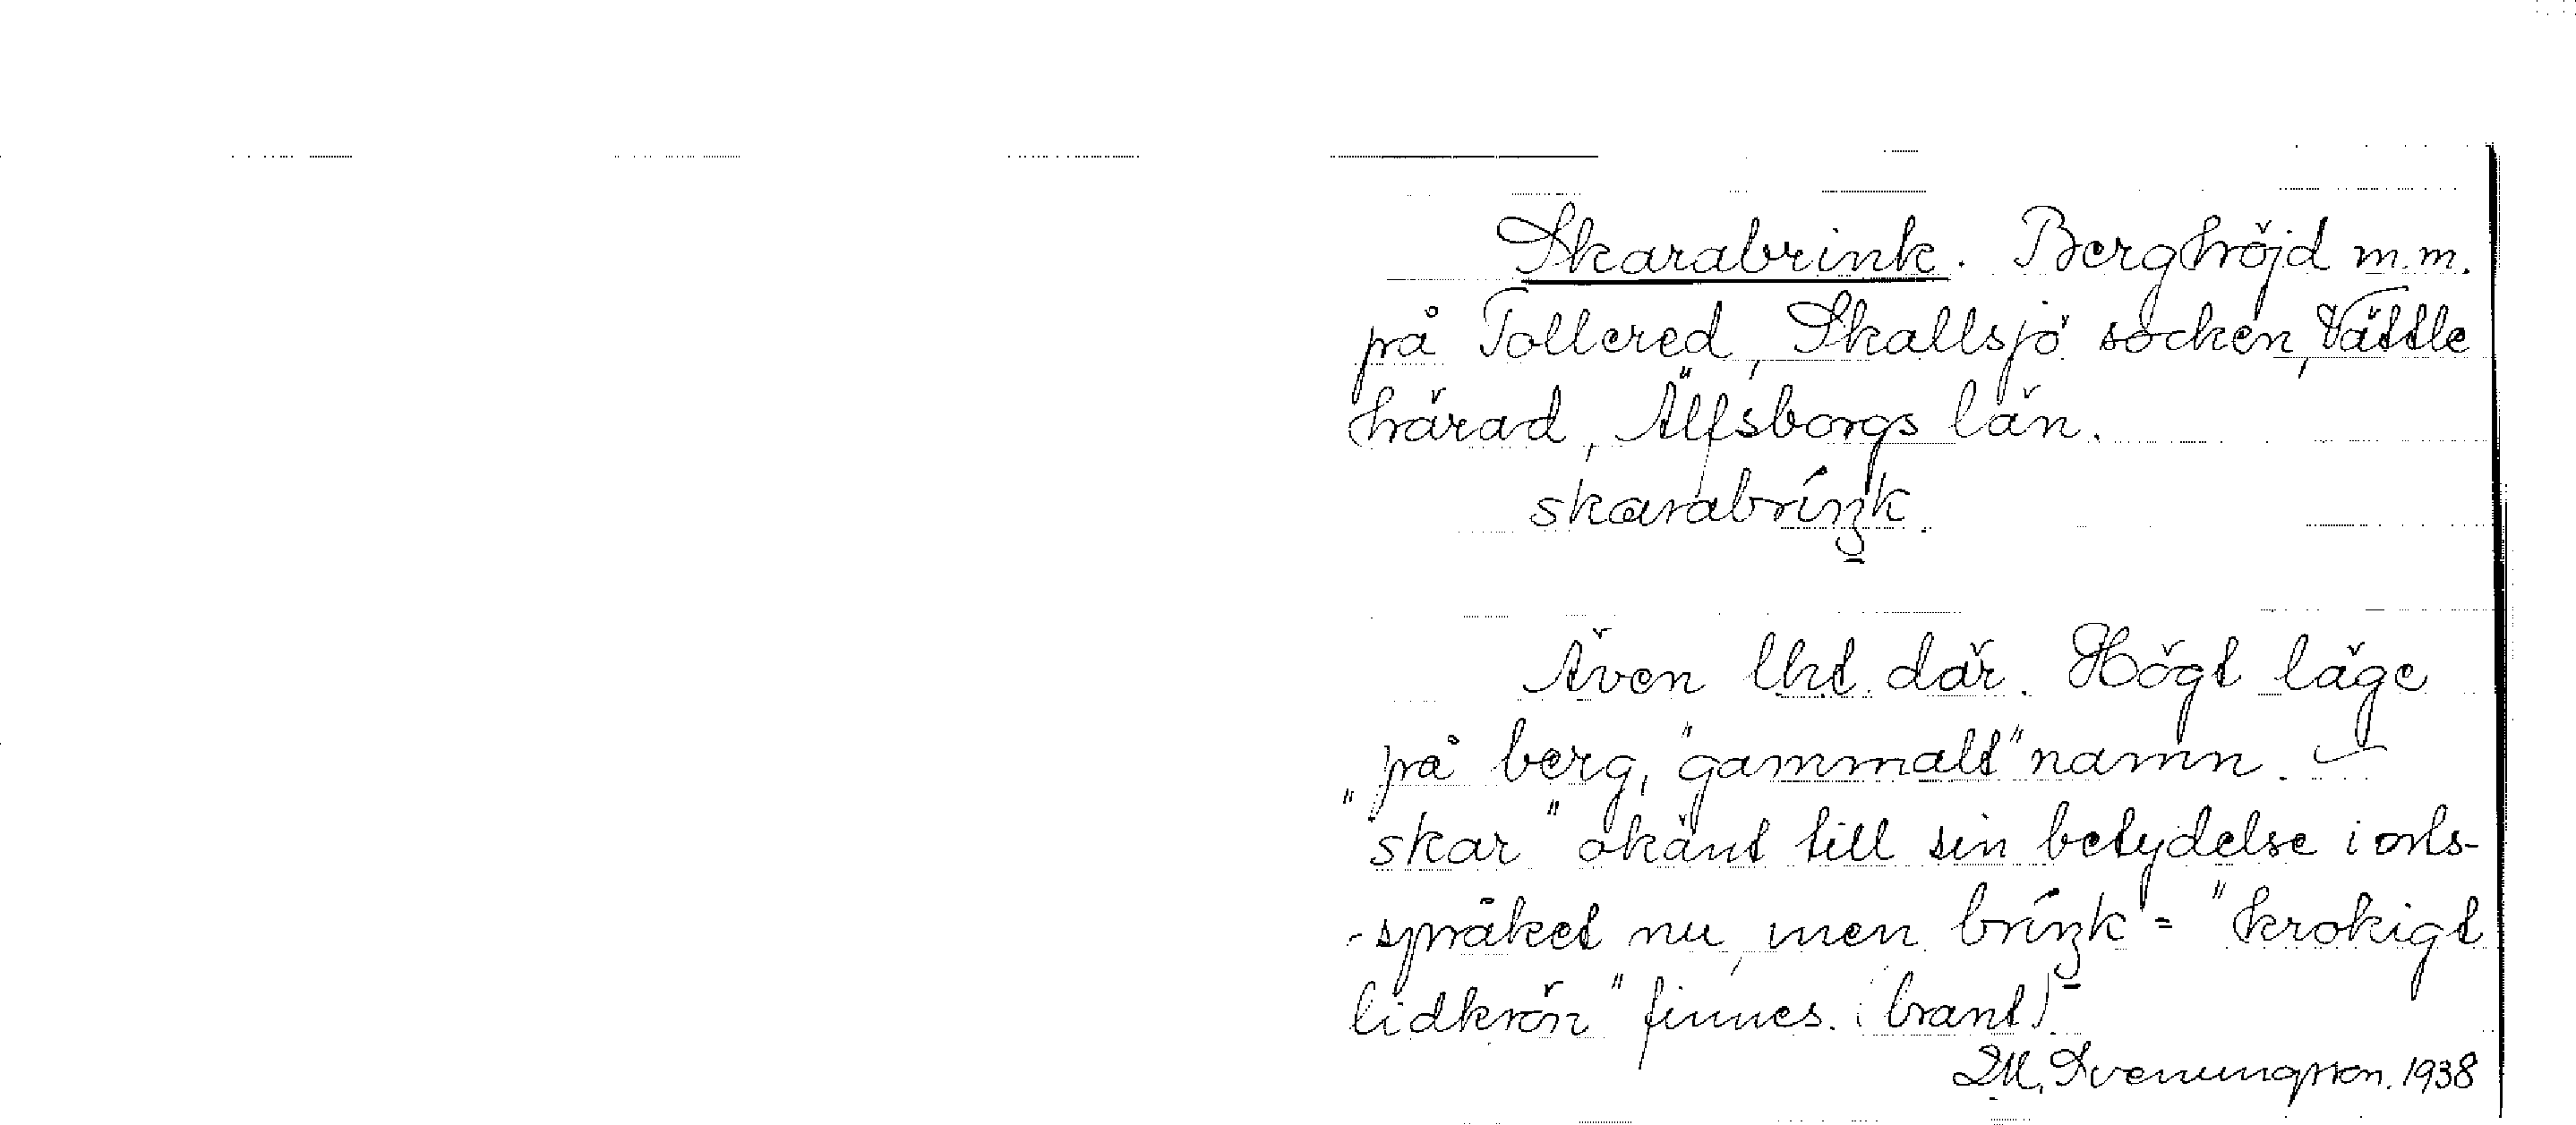 Skarabrink. Berghöjd m.m.
på Tollered, Skallsjö socken, Vättle
härad, Älfsborgs län.
skarabrińʒk.
Även lht där. Högt läge
på berg, "gammalt" namn. –
"skar" okänt till sin betydelse i orts-
-språket nu, men brińʒk = "krokigt
lidkrön" finnes. (brant)
D.M. Svenungsson. 1938